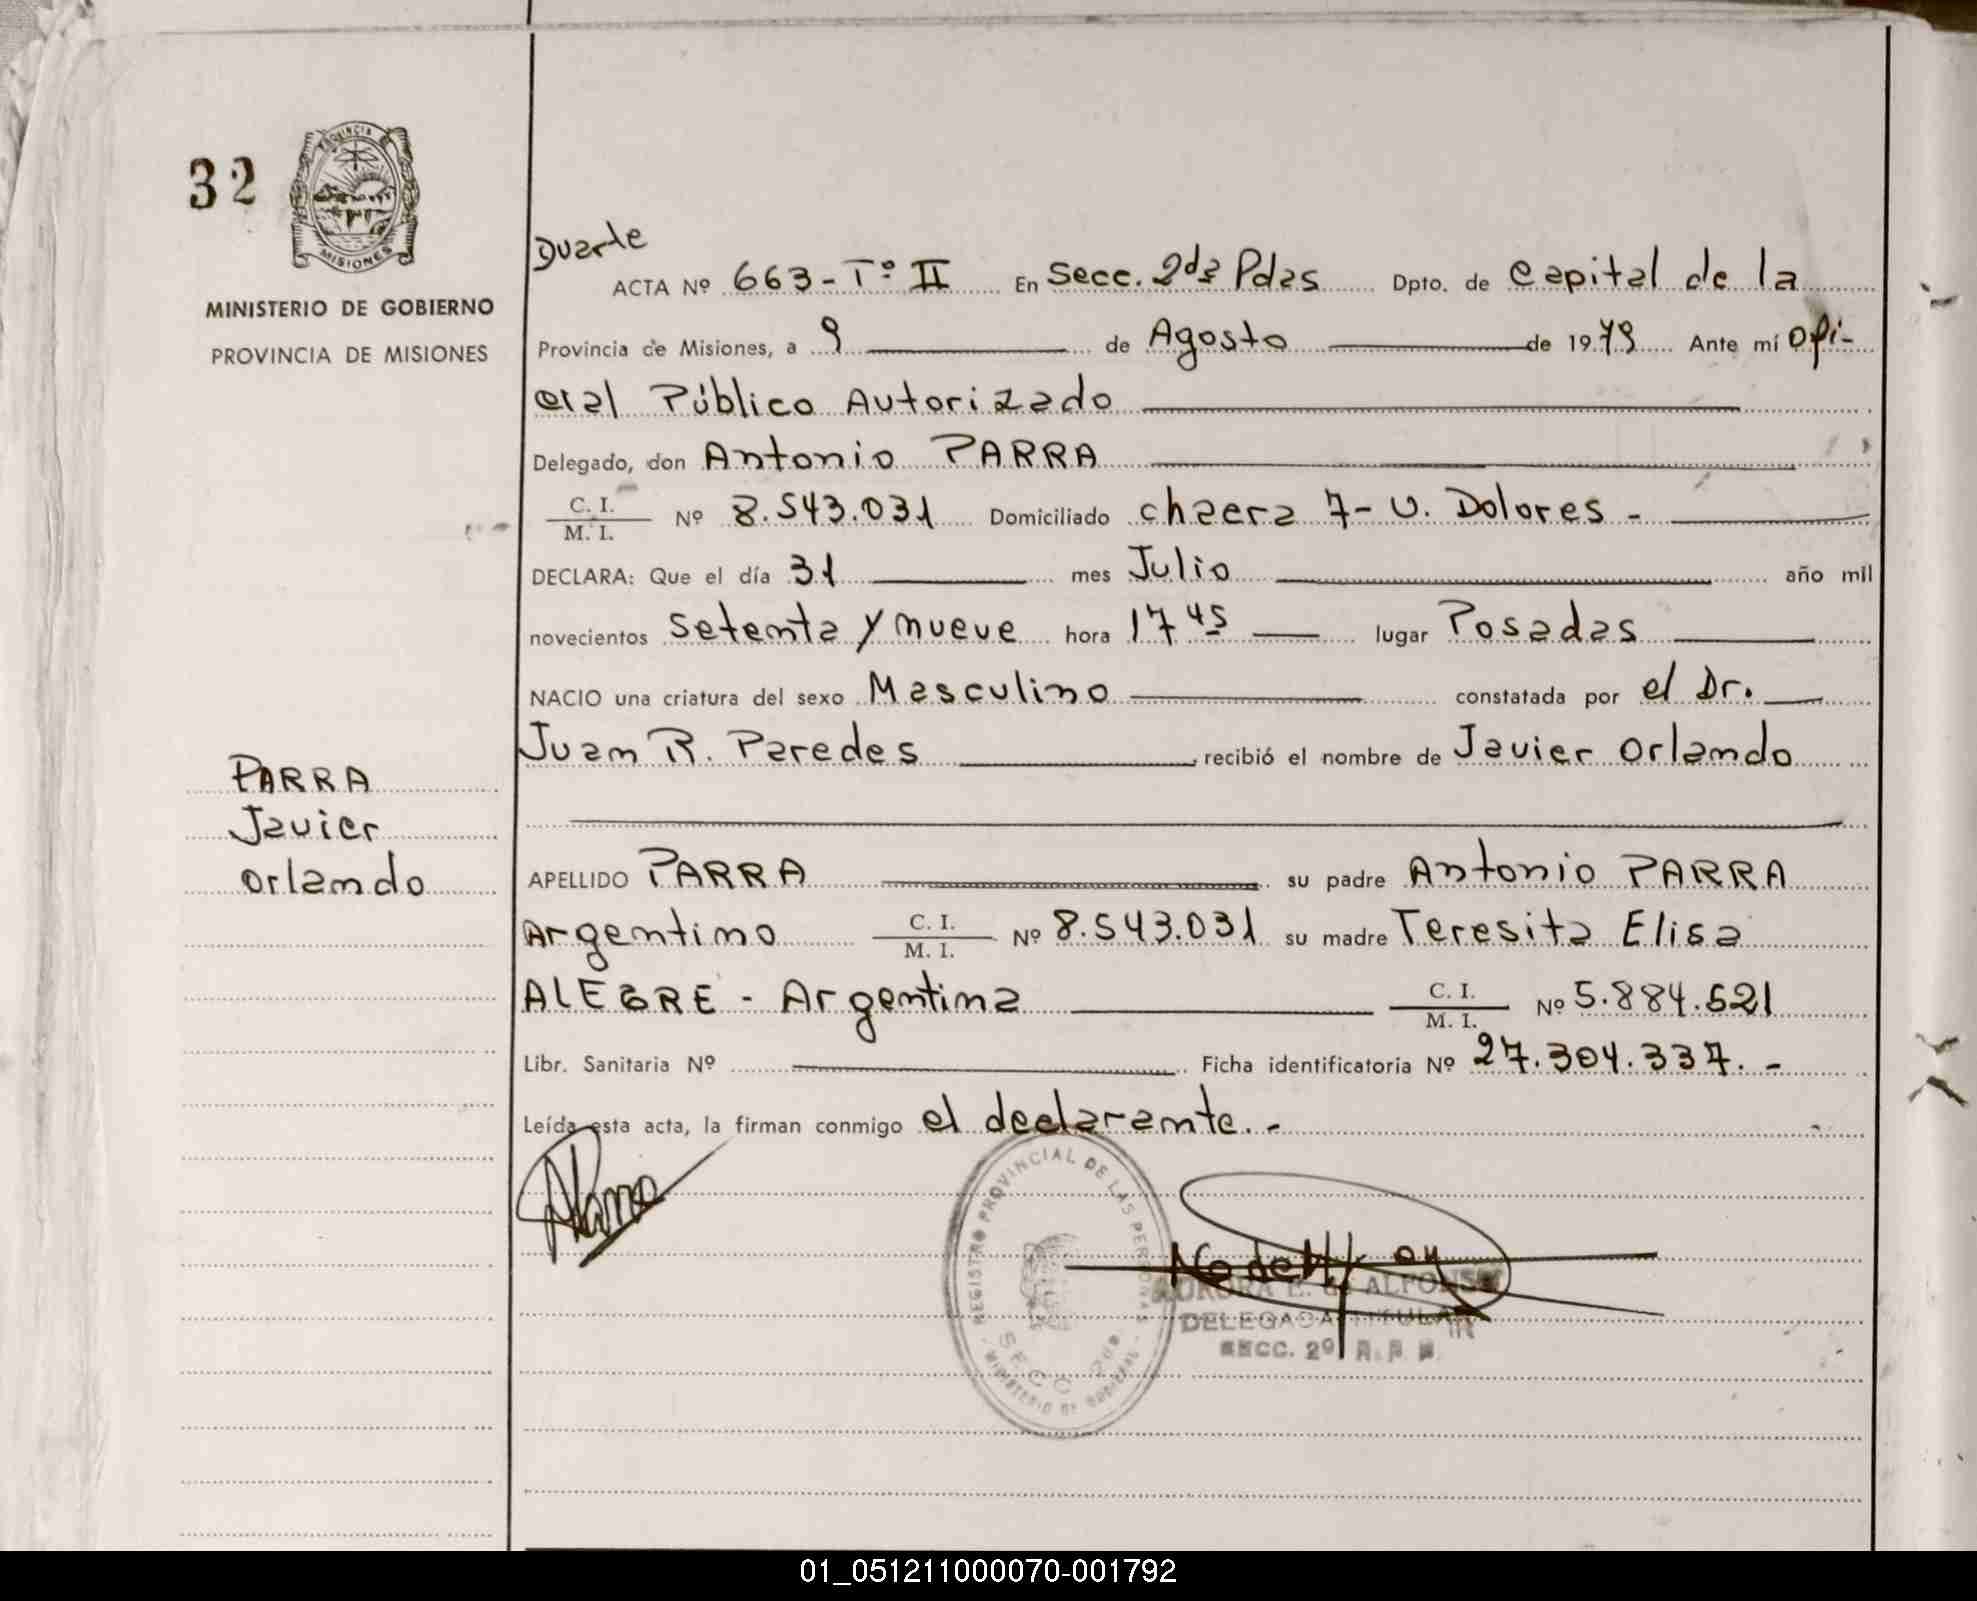 32
PROVINCIA DE
MISIONES
MINISTERIO DE GOBIERNO
PROVINCIA DE MISIONES
Duarte
ACTA Nº 663-Tº II En Secc. 2da Pdas Dpto. de Capital de la
Provincia de Misiones, a 9 de Agosto de 1979 Ante mí Ofi-
cial Público Autorizado
Delegado, don Antonio PARRA
C. I.
M. I. Nº 8.543.031 Domiciliado chacra 7- V. Dolores -
DECLARA: Que el día 31 mes Julio año mil
novecientos setenta y nueve hora 17 45 lugar Posadas
NACIO una criatura del sexo Masculino constatada por el Dr.
Juan R. Paredes recibió el nombre de Javier Orlando
PARRA
Javier
Orlando
APELLIDO PARRA su padre Antonio PARRA
Argentino C. I. M. I. Nº 8.543.031 su madre Teresita Elisa
ALEGRE - Argentina C. I. M. I. Nº 5.884.621
Libr. Sanitaria Nº Ficha identificatoria Nº 27.304.337. -
Leída esta acta, la firman conmigo el declarante. -
AParra
REGISTRO PROVINCIAL DE LAS PERSONAS
SECC 2da
- MINISTERIO DE GOBIERNO -
AURORA E. de ALFONSO
DELEGADA TITULAR
SECC. 2º R. P. P.
01_051211000070-001792